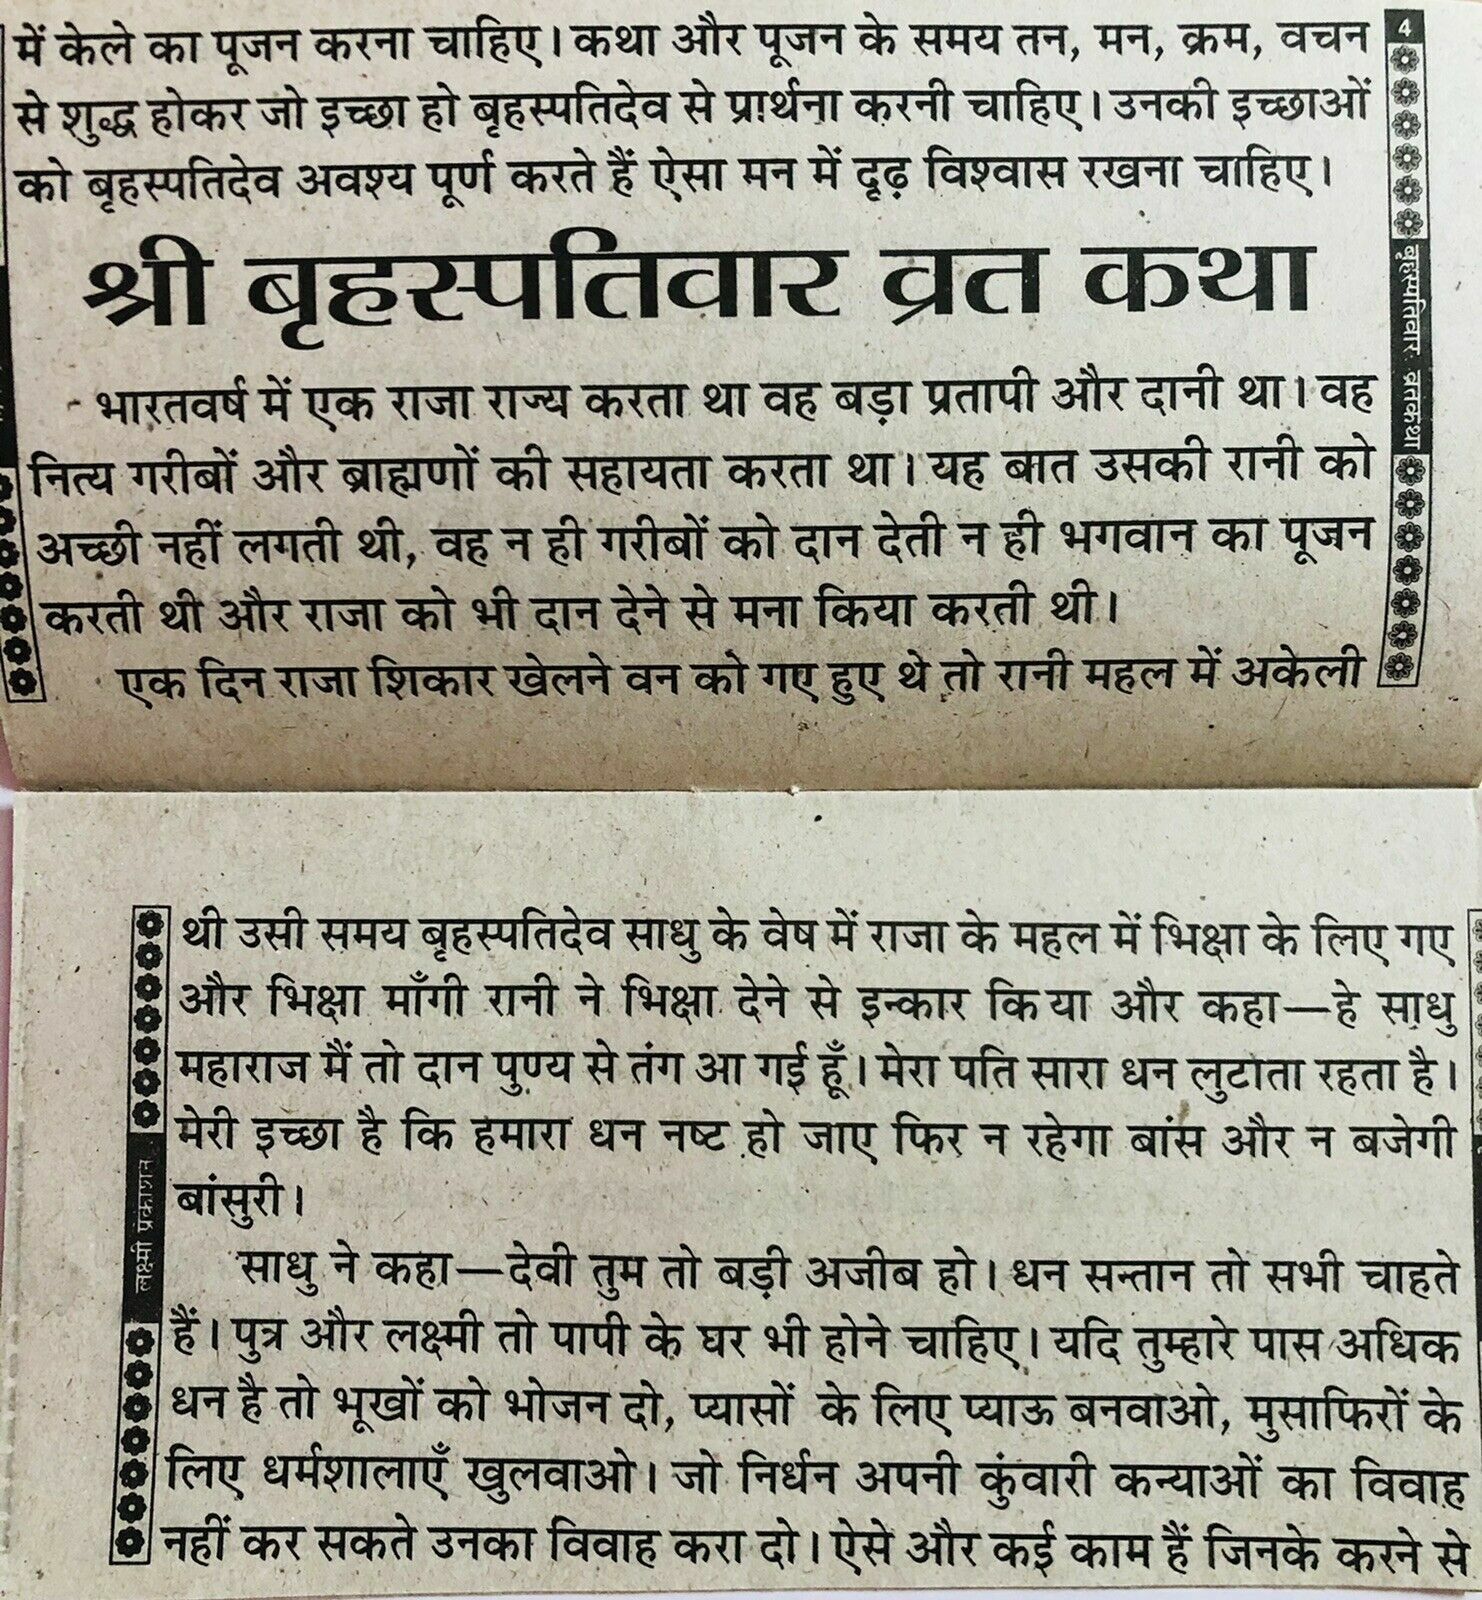 में केले का पूजन करना चाहिए। कथा और पूजन के समय तन, मन, क्रम, वचन
से शुद्ध होकर जो इच्छा हो बृहस्पतिदेव से प्रार्थना करनी चाहिए। उनकी इच्छाओं
को बृहस्पतिदेव अवश्य पूर्ण करते हैं ऐसा मन में दृढ़ विश्वास रखना चाहिए।
श्री बृहस्पतिवार व्रत कथा
भारतवर्ष में एक राजा राज्य करता था वह बड़ा प्रतापी और दानी था। वह
नित्य गरीबों और ब्राह्मणों की सहायता करता था। यह बात उसकी रानी को
अच्छी नहीं लगती थी, वह न ही गरीबों को दान देती न ही भगवान का पूजन
करती थी और राजा को भी दान देने से मना किया करती थी।
एक दिन राजा शिकार खेलने वन को गए हुए थे तो रानी महल में अकेली
4
बृहस्पतिवार व्रतकथा
थी उसी समय बृहस्पतिदेव साधु के वेष में राजा के महल में भिक्षा के लिए गए
और भिक्षा माँगी रानी ने भिक्षा देने से इन्कार किया और कहा—हे साधु
महाराज मैं तो दान पुण्य से तंग आ गई हूँ। मेरा पति सारा धन लुटाता रहता है।
मेरी इच्छा है कि हमारा धन नष्ट हो जाए फिर न रहेगा बांस और न बजेगी
बांसुरी।
साधु ने कहा—देवी तुम तो बड़ी अजीब हो। धन सन्तान तो सभी चाहते
हैं। पुत्र और लक्ष्मी तो पापी के घर भी होने चाहिए। यदि तुम्हारे पास अधिक
धन है तो भूखों को भोजन दो, प्यासों के लिए प्याऊ बनवाओ, मुसाफिरों के
लिए धर्मशालाएँ खुलवाओ। जो निर्धन अपनी कुंवारी कन्याओं का विवाह
नहीं कर सकते उनका विवाह करा दो। ऐसे और कई काम हैं जिनके करने से
लक्ष्मी प्रकाशन